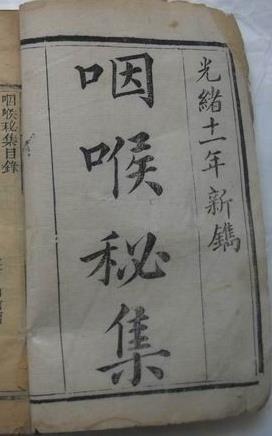 光緒十一年新鐫
咽喉秘集
咽喉秘集目錄